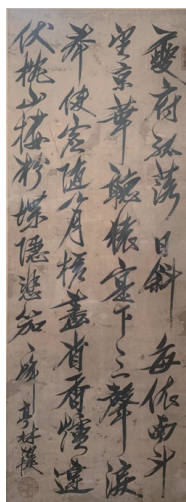 夔府孤落日斜每依南斗
望京華聽猿實下三聲淚
奉使虛隨八月槎畫省香爐違
伏枕山樓粉堞隱悲笳 亭林